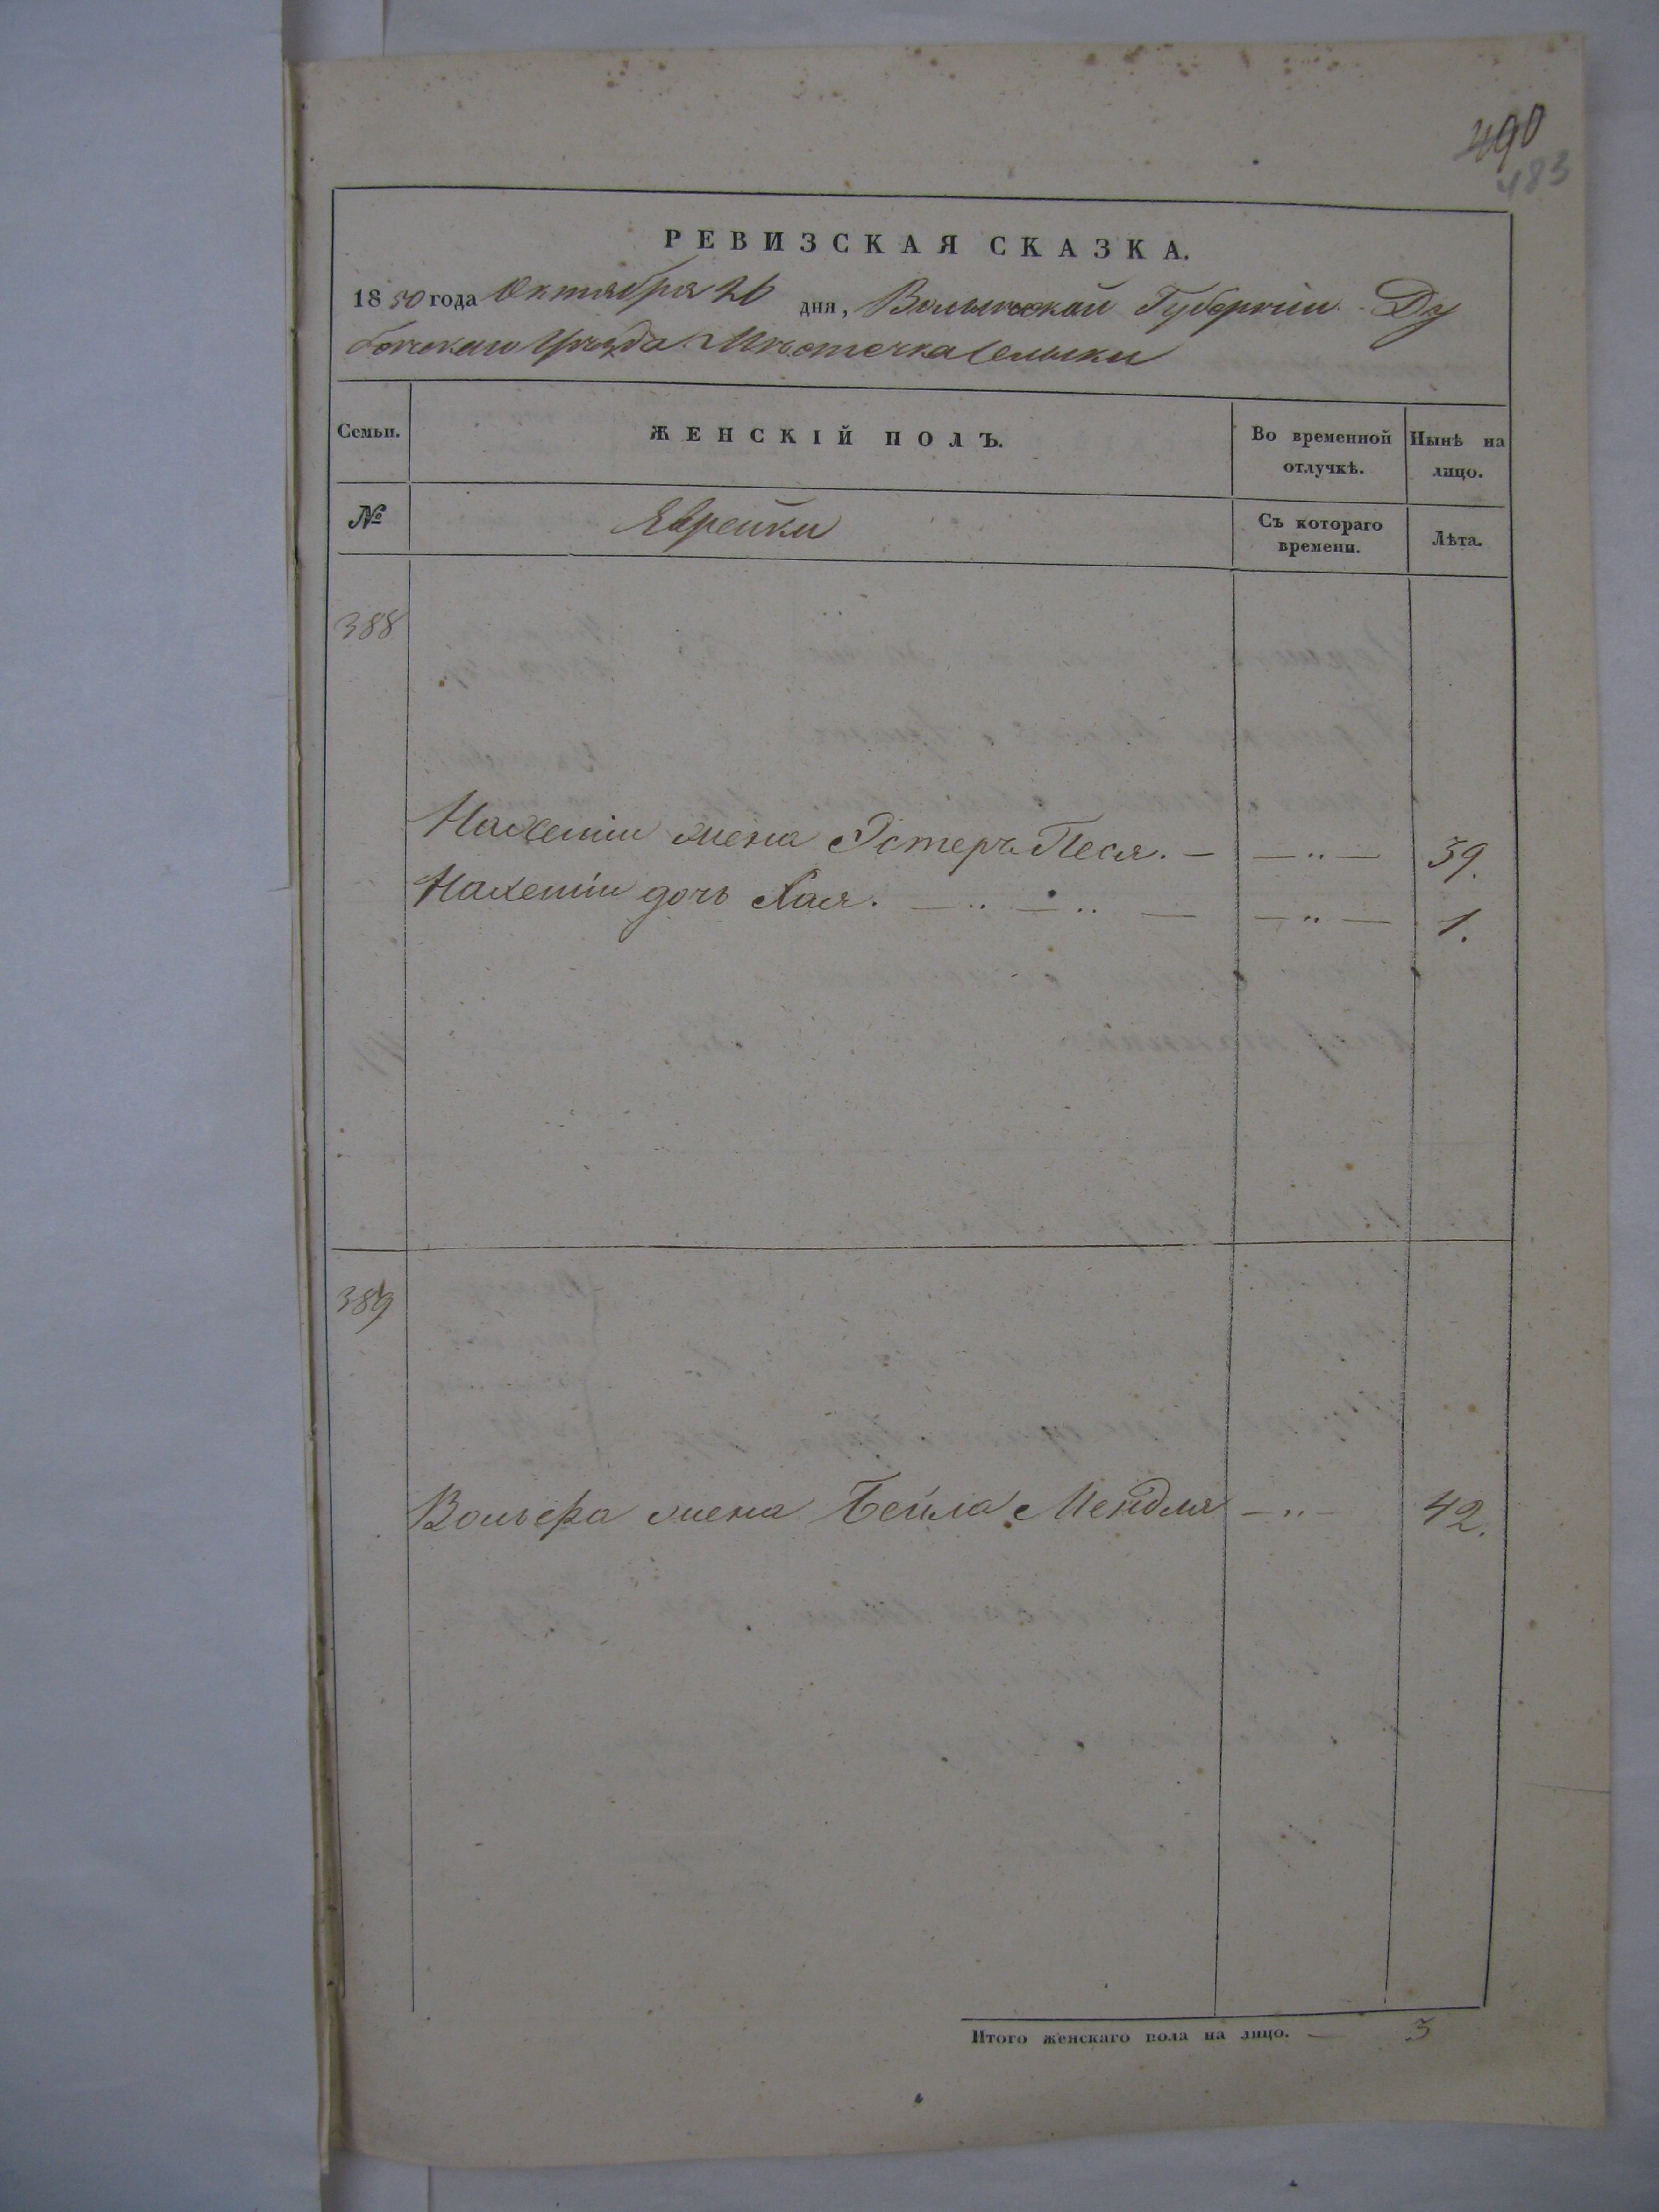 490
483
РЕВИЗСКАЯ СКАЗКА.
1850 года Октября 26 дня, Волынской Губерніи Ду
бенскаго Уѣзда Мѣстечка
Семьи. ЖЕНСКІЙ ПОЛЪ. Во временной отлучкѣ. Нынѣ на лицо.
№ Еврейки Съ котораго времени. Лѣта.
388
жена Эстеръ Песя. — — „ — 39.
дочь Хая. — „ — „ — — „ — 1.
389
Вольфа жена Бейла Мендля — „ — 42.
Итого женскаго пола на лицо. — 3